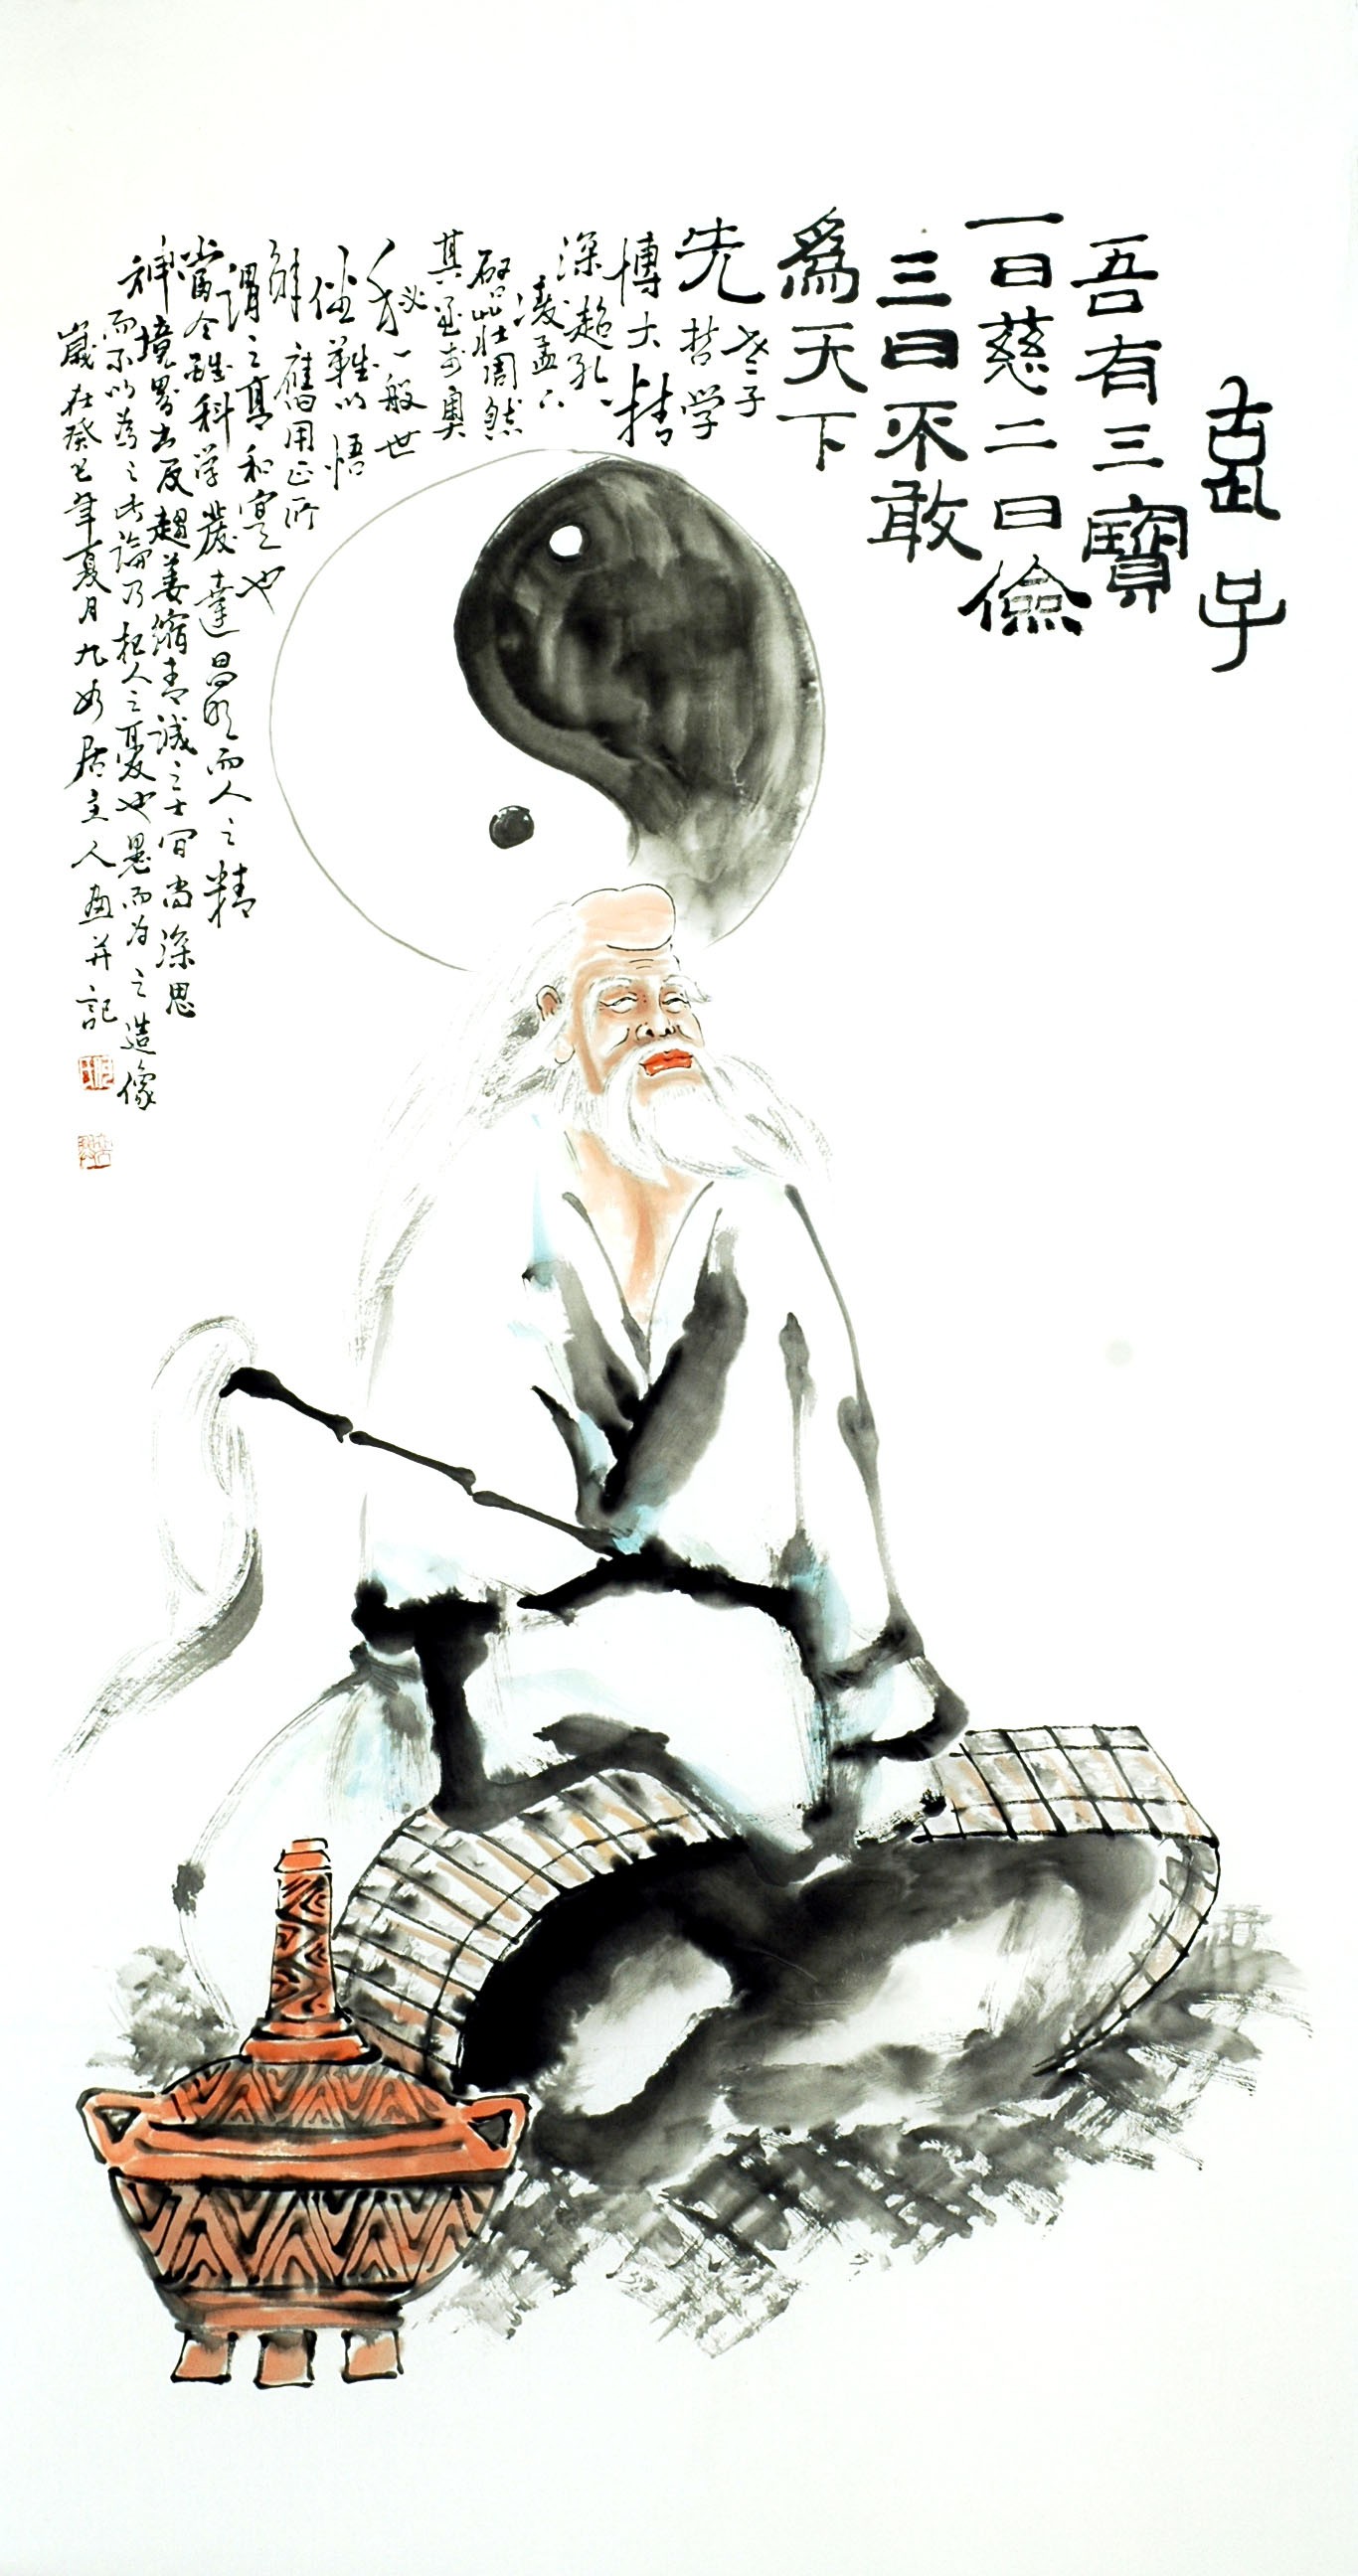 老子
吾有三寶
一曰慈二曰儉
三曰不敢
爲天下
先
老子
哲学
博大精
深超孔
凌孟下
啓莊周然
其玄奇奧
秘一般世
難以悟
解應用正所
謂之高和寡也
當今雖科学發達昌明而人之精
神境界出反趨萎縮 之士 尚深思
而不以為之此論乃杞人之憂也愚而为之造像
歲在癸巳年夏月九如居主人画并記